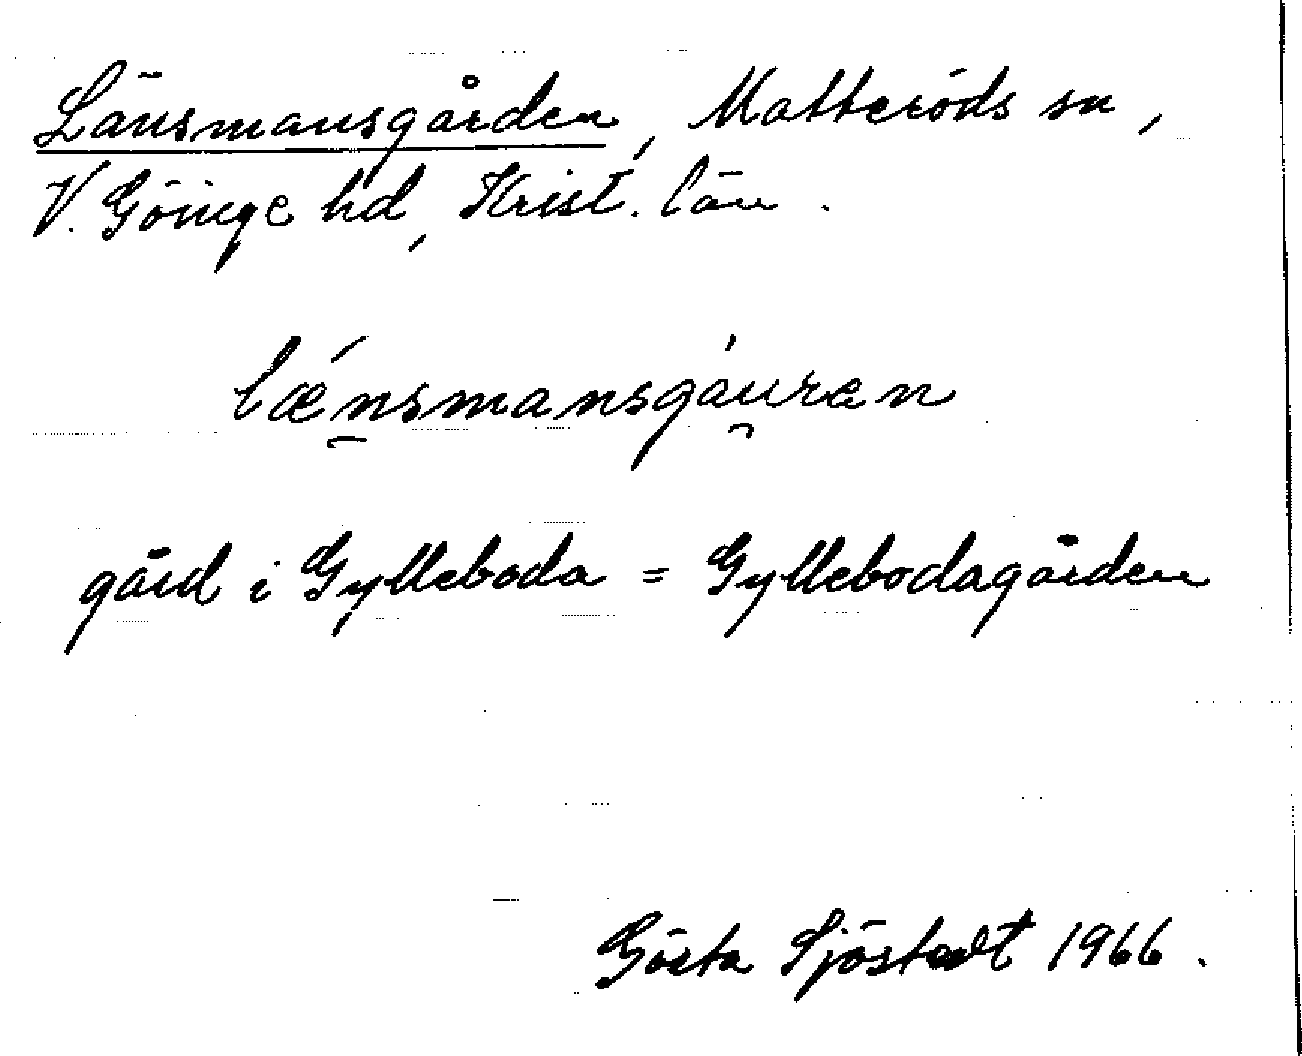 Länsmansgården, Matteröds sn,
V. Göinge hd, Krist. län.
lænsmansgáu̯ren
gård i Gylleboda = Gyllebodagården
Gösta Sjöstedt 1966.